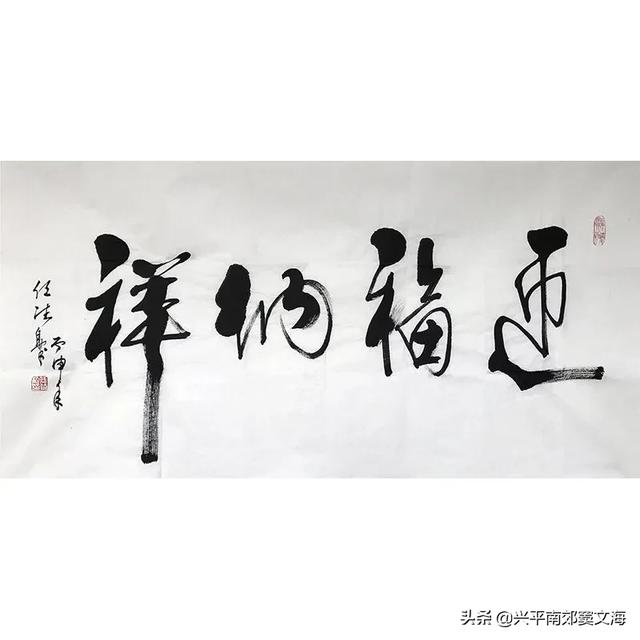 迎福纳祥
丙申年
头条 @兴平南郊窦文海